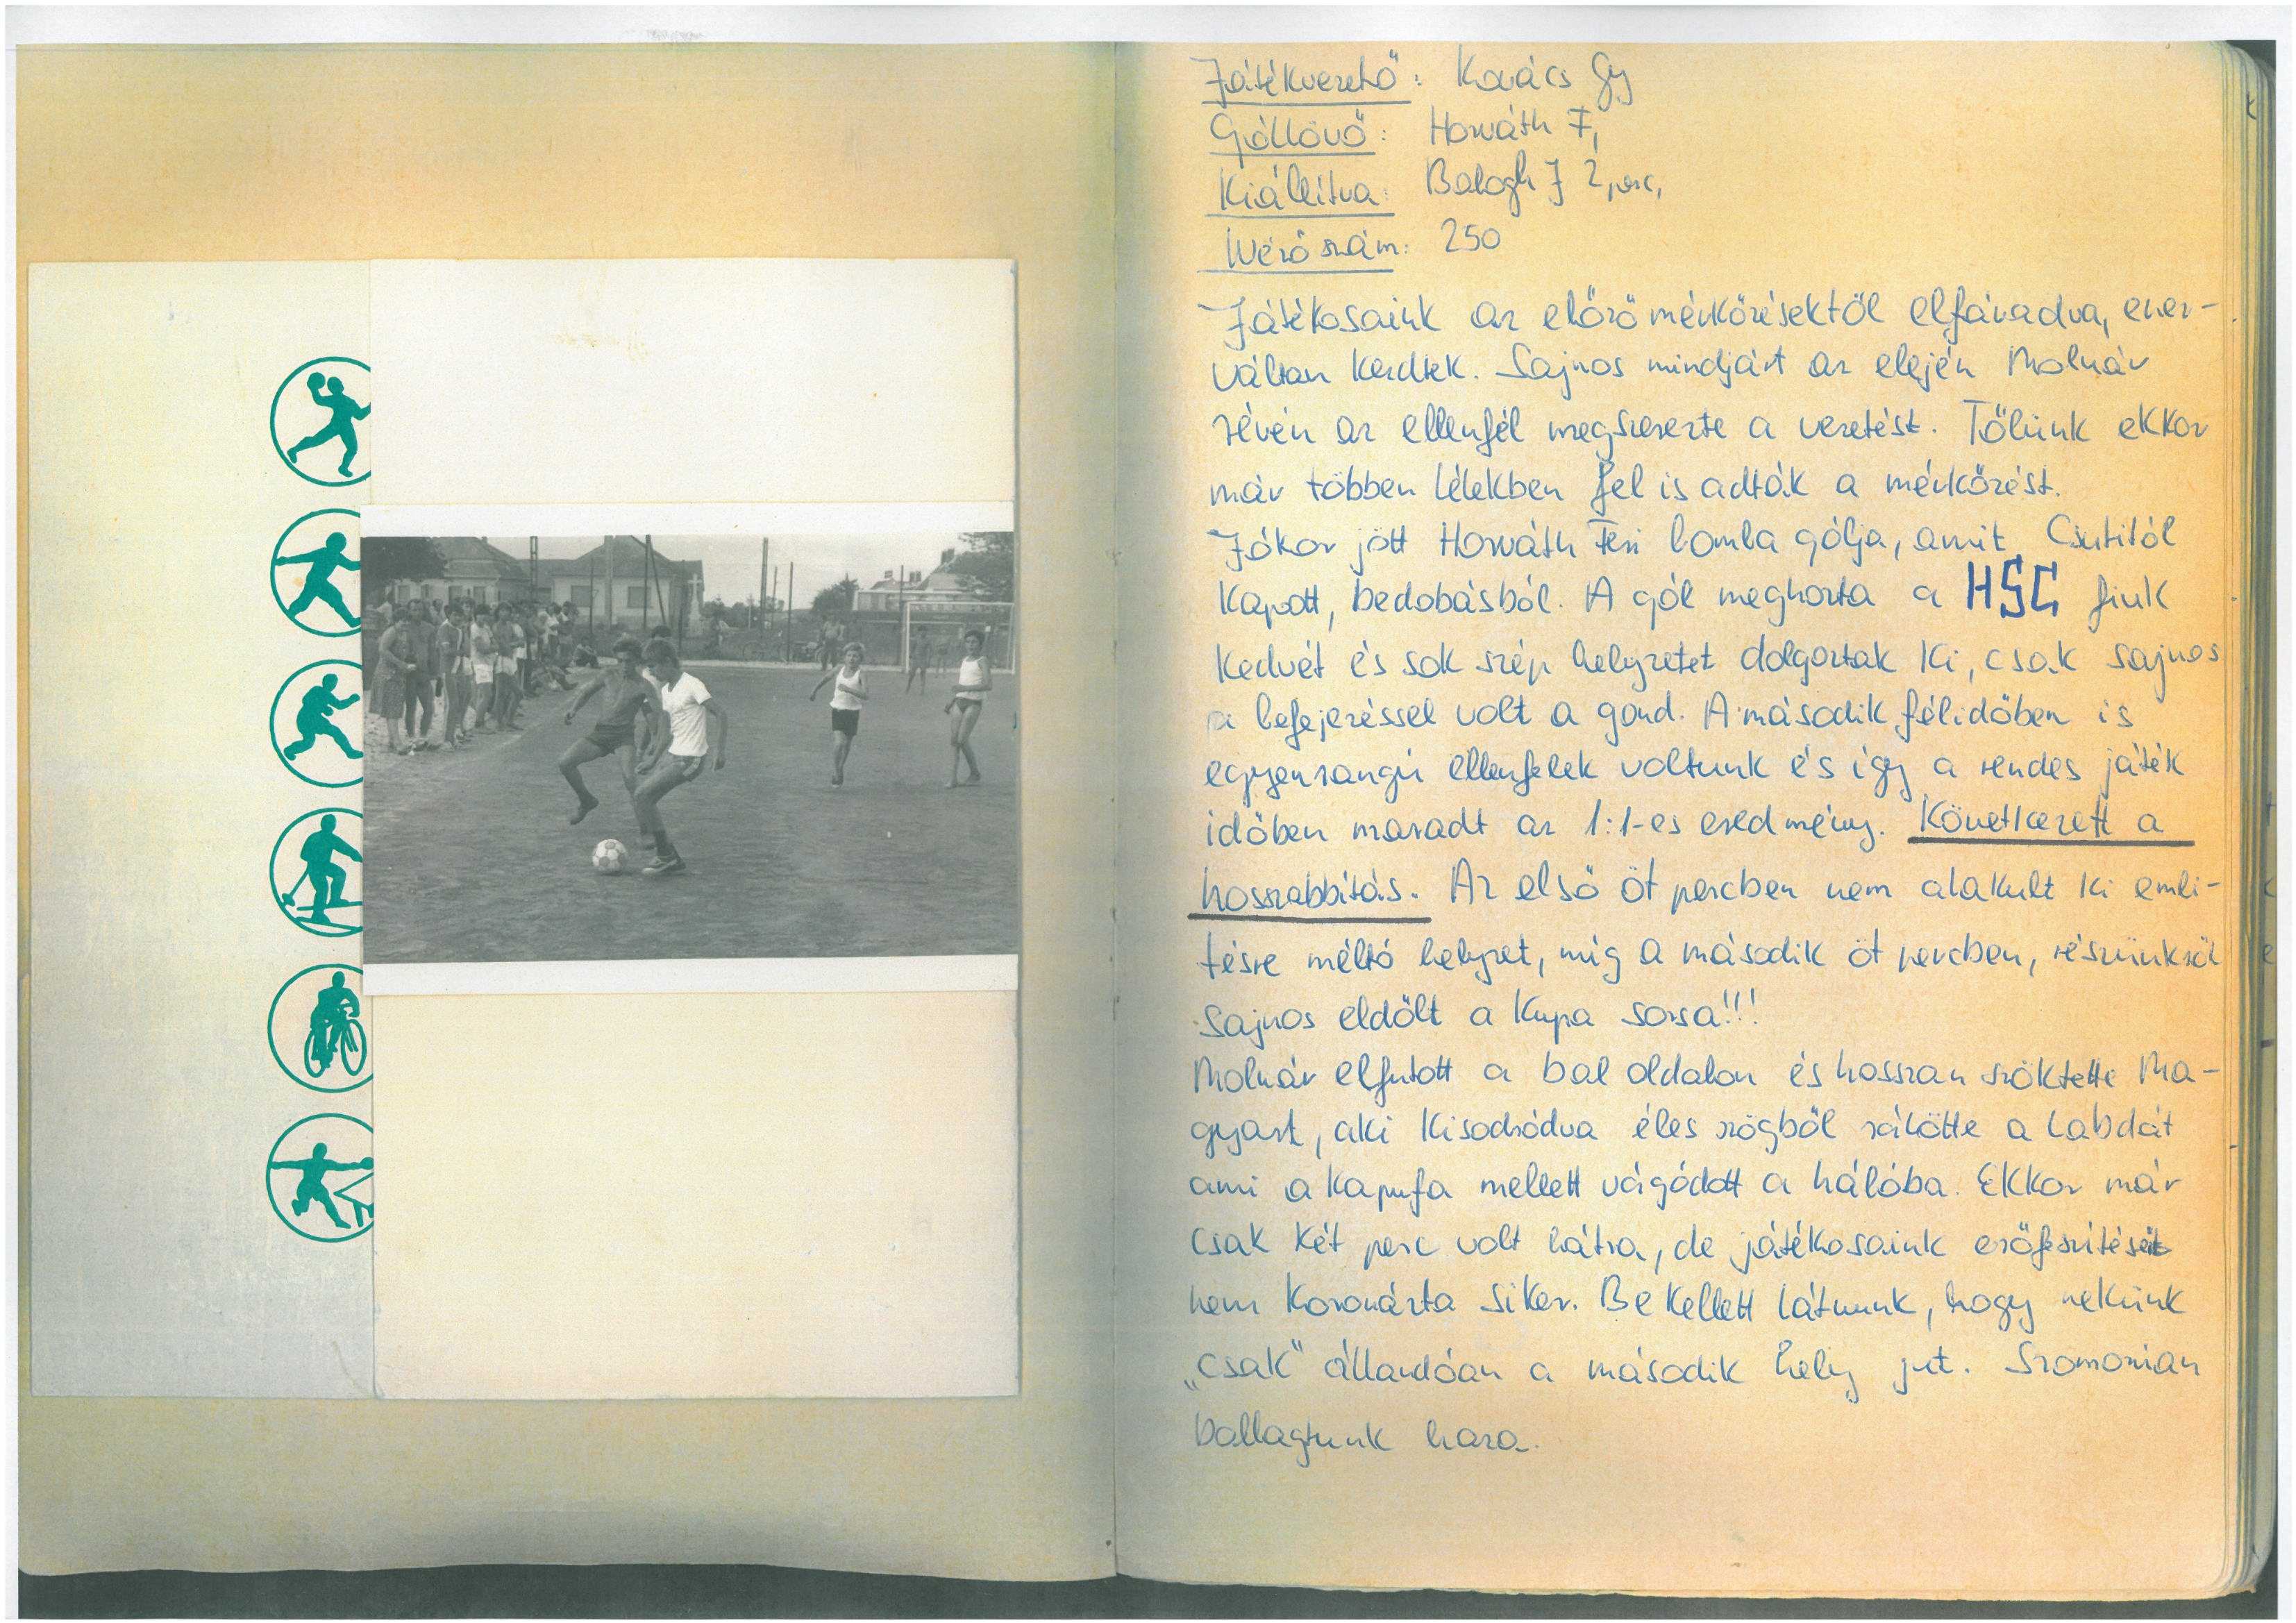 Játékvezető: Kovács Gy
Góllövő: Horváth F,
Kiállítva: Balogh J 2, perc,
Nézőszám: 250
Játékosaink az előző mérkőzésektől elfáradva, ener-
váltan kezdtek. Sajnos mindjárt az elején Molnár
révén az ellenfél megszerezte a vezetést. Tőlünk ekkor
már többen lélekben fel is adták a mérkőzést.
Jókor jött Horváth Feri bomba gólja, amit Csutitól
kapott, bedobásból. A gól meghozta a HSC fiuk
kedvét és sok szép helyzetet dolgoztak ki, csak sajnos
a befejezéssel volt a gond. A második félidőben is
egyenrangú ellenfelek voltunk és így a rendes játék
időben maradt az 1:1-es eredmény. Következett a
hosszabbítás. Az első öt percben nem alakult ki emli-
tésre méltó helyzet, mig a második öt percben, részünkről
sajnos eldőlt a Kupa sorsa!!!
Molnár elfutott a bal oldalon és hosszan szöktette Ma-
gyart, aki kisodródva éles szögből rálőtte a labdát
ami a kapufa mellett vágódott a hálóba. Ekkor már
csak két perc volt hátra, de játékosaink erőfeszítéseit
nem koronázta siker. Be kellett látnunk, hogy nekünk
„csak" állandóan a második hely jut. Szomorúan
ballagtunk haza.